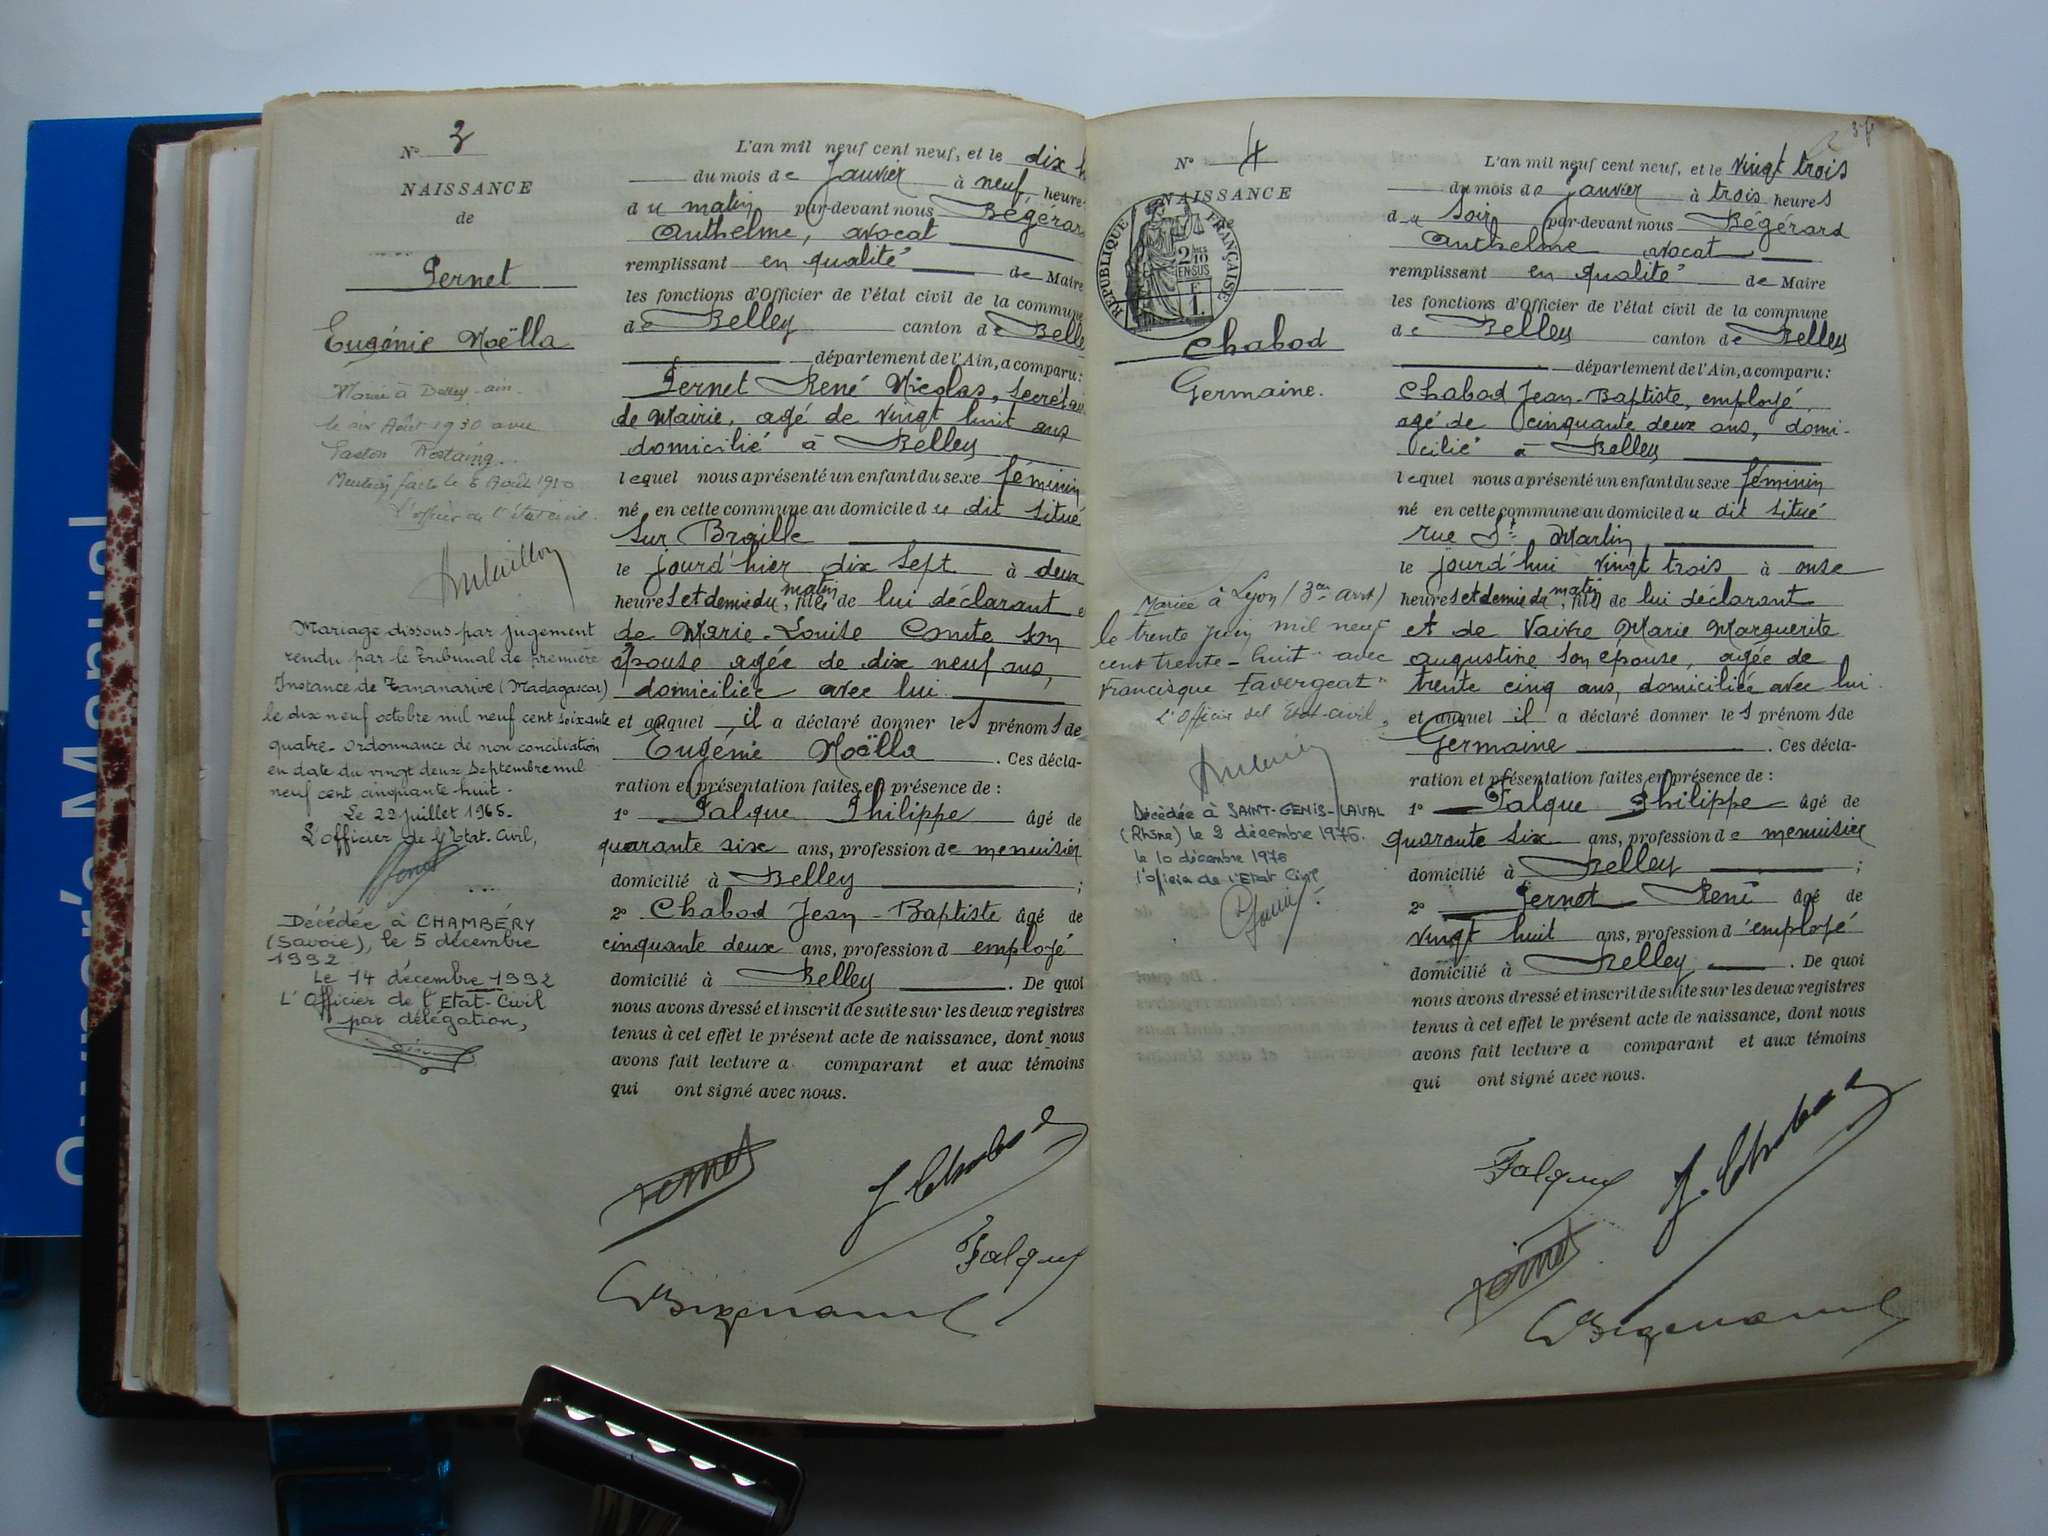 N° 3
NAISSANCE
de
Pernet
Eugénie Noëlla
Mariée à Belley - ain.
le six Août 1930 avec
Gaston Rostaing.
Mention faite le 8 Août 1930.
L'officier de l'état civil.
Mariage dissous par jugement
rendu par le Tribunal de première
Instance de Tananarive (Madagascar)
le dix neuf octobre mil neuf cent soixante
quatre - Ordonnance de non conciliation
en date du vingt deux Septembre mil
neuf cent cinquante-huit.
Le 22 juillet 1965.
L'officier de l'Etat-Civil,
Décédée à CHAMBÉRY
(Savoie), le 5 décembre
1992.
Le 14 décembre 1992
L'Officier de l'Etat-Civil
par délégation,
L'an mil neuf cent neuf, et le dix h
du mois de Janvier à neuf heure
du matin par-devant nous Bégérard
Anthelme, avocat
remplissant en qualité de Maire
les fonctions d'Officier de l'état civil de la commune
de Belley canton de Belle
département de l'Ain, a comparu :
Pernet René Nicolas, Secrétai
de Mairie, agé de vingt huit ans
domicilié à Belley
lequel nous a présenté un enfant du sexe féminin
né en cette commune au domicile du dit situé
Sur Braille
le jourd'hier dix sept à deux
heures et demie du matin, fille de lui déclarant e
de Marie-Louise Comte son
épouse agée de dix neuf ans,
domiciliée avec lui
et auquel il a déclaré donner les prénoms de
Eugénie Noëlla . Ces décla-
ration et présentation faites en présence de :
1° Falque Philippe âgé de
quarante six ans, profession de menuisier
domicilié à Belley ;
2° Chabod Jean-Baptiste âgé de
cinquante deux ans, profession d employé
domicilié à Belley . De quoi
nous avons dressé et inscrit de suite sur les deux registres
tenus à cet effet le présent acte de naissance, dont nous
avons fait lecture a comparant et aux témoins
qui ont signé avec nous.
Pernet
J Chabod
Falque
N° 4
NAISSANCE
de
RÉPUBLIQUE FRANÇAISE
2/10
EN SUS
1 F
Chabod
Germaine.
Mariée à Lyon (3e arrt)
le trente Juin mil neuf
cent trente-huit avec
Francisque Favergeat
L'Officier de l'Etat-civil,
Décédée à SAINT-GENIS-LAVAL
(Rhône) le 2 décembre 1976.
le 10 décembre 1976
l'officier de l'Etat Civil
L'an mil neuf cent neuf, et le vingt trois
du mois de Janvier à trois heures
du Soir par-devant nous Bégérard
Anthelme avocat
remplissant en qualité de Maire
les fonctions d'Officier de l'état civil de la commune
de Belley canton de Belley
département de l'Ain, a comparu :
Chabod Jean-Baptiste, employé,
agé de cinquante deux ans, domi-
cilié à Belley
lequel nous a présenté un enfant du sexe féminin
né en cette commune au domicile du dit situé
rue St Martin,
le jourd'hui vingt trois à onse
heures et demie du matin, fille de lui déclarant
et de Vaivre Marie Marguerite
augustine son epouse, agée de
trente cinq ans, domiciliée avec lui.
et auquel il a déclaré donner les prénoms de
Germaine . Ces décla-
ration et présentation faites en présence de :
1° Falque Philippe âgé de
quarante six ans, profession de menuisier
domicilié à Belley ;
2° Pernet René âgé de
vingt huit ans, profession d'employé
domicilié à Belley . De quoi
nous avons dressé et inscrit de suite sur les deux registres
tenus à cet effet le présent acte de naissance, dont nous
avons fait lecture a comparant et aux témoins
qui ont signé avec nous.
Falque
J. Chabod
Pernet